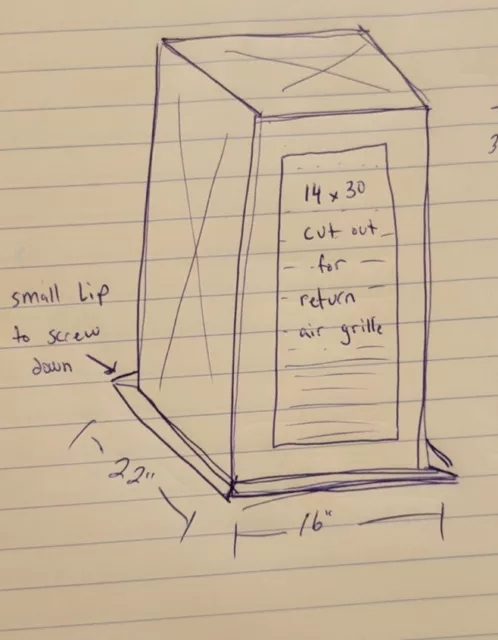 14 x 30
cut out
for
return
air grille
small Lip
to screw
down
22"
16"
3